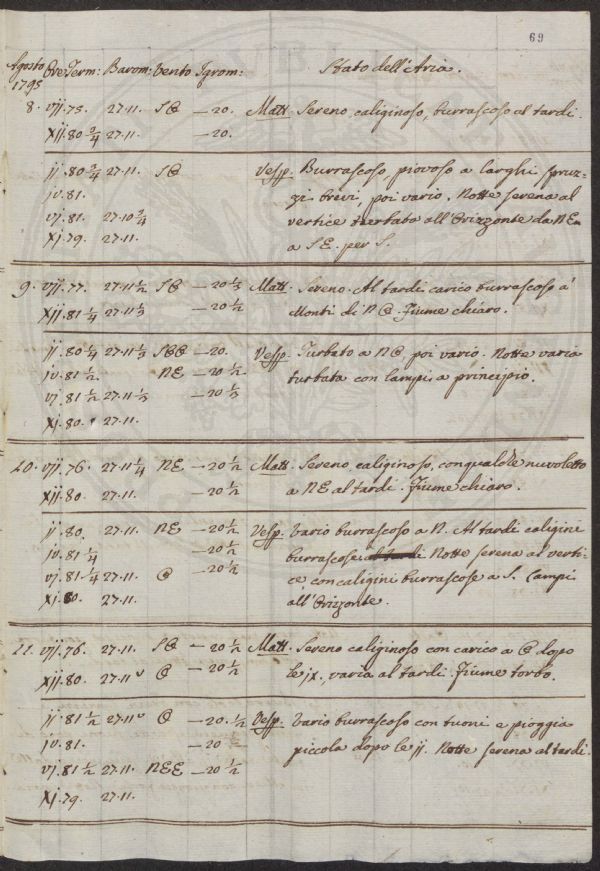 69
Agosto 1795 Ore Term: Barom: Vento Igrom: Stato dell'Aria.
8. vij. 75. 27.11. SO — 20. Matt. Sereno, caliginoso, burrascoso al tardi.
xij. 80 3/4 27.11. — 20.
ij. 80 3/4 27.11. SO Vesp. Burrascoso, piovoso a larghi spruz-
iv. 81. zi brevi, poi vario, Notte serena al
vj. 81. 27.10 3/4 vertice turbato all'Orizzonte da NE
xj. 79. 27.11. a SE. per S.
9. vij. 77. 27.11 1/2 SO — 20 1/3 Matt. Sereno. Al tardi carico burrascoso a'
xij. 81 1/4 27.11 1/3 — 20 1/2 Monti di NO. Fiume chiaro.
ij. 80 1/4 27.11 1/3 SOO — 20. Vesp. Turbato a NO, poi vario. Notte varia
iv. 81 1/2. NE — 20 1/2 turbata con lampi a principio.
vj. 81 1/2 27.11 1/3 — 20 1/3
xj. 80. 27.11.
10. vij. 76. 27.11 1/4 NE — 20 1/2 Matt. Sereno, caliginoso, con qualche nuvoletto
xij. 80. 27.11. — 20 1/2 a NE al tardi. Fiume chiaro.
ij. 80. 27.11. NE — 20 1/2 Vesp. Vario burrascoso a N. Al tardi caligini
iv. 81 1/4 — 20 1/2 burrascose. Notte serena al verti-
vj. 81 1/4 27.11. O — 20 1/2 ce con caligini burrascose a S. Lampi
xj. 80. 27.11. all'Orizzonte.
11. vij. 76. 27.11. SO — 20 1/2 Matt. Sereno caliginoso con carico a O dopo
xij. 80. 27.11 O — 20 1/2 le ix. varia al tardi. Fiume torbo.
ij. 81 1/2 27.11 O — 20. 1/2 Vesp. Vario burrascoso con tuoni e pioggia
iv. 81. — 20 piccola dopo le ij. Notte serena al tardi.
vj. 81 1/2 27.11. NEE — 20 1/2
xj. 79. 27.11.